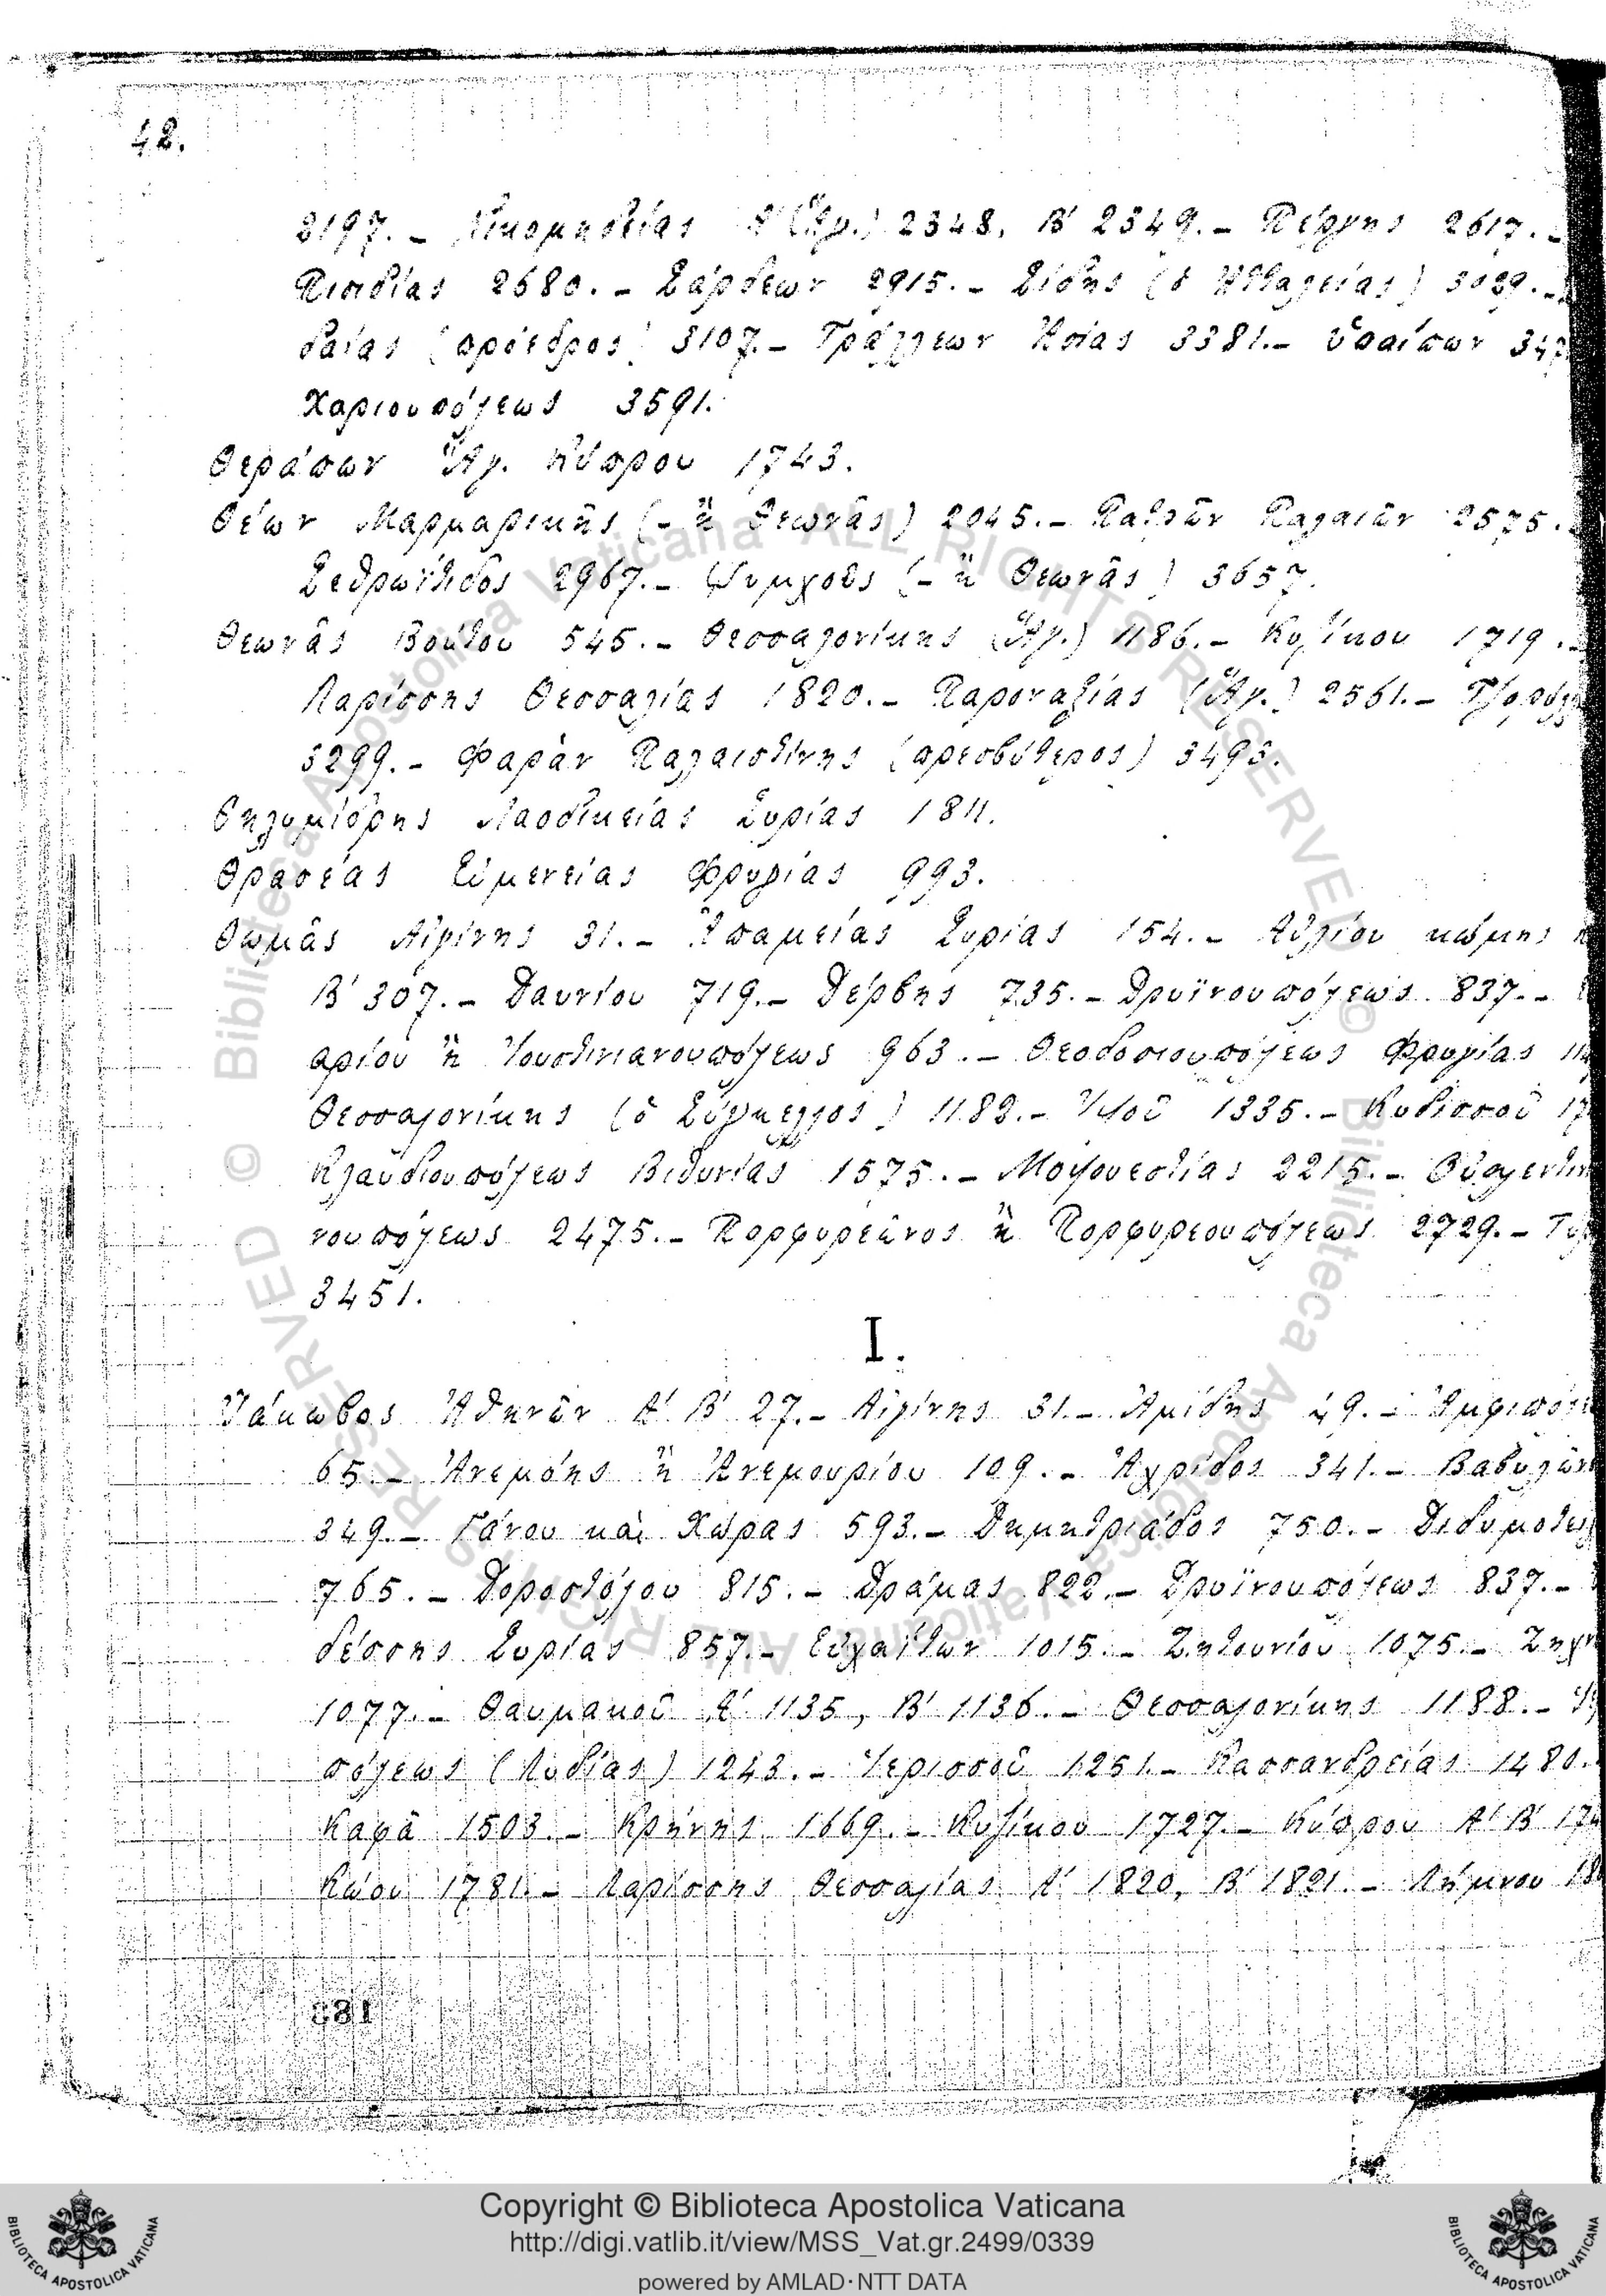 42.
2197. – Νικομηδείας Α' (Ἅγ.) 2348, Β' 2349. – Πέργης 2617. –
Πισιδίας 2680. – Σάρδεων 2915. – Σίδης (ὁ Ἀτταλείας) 3029. –
δαίας (πρόεδρος) 3107. – Τράλλεων Ἀσίας 3381. – Ὑπαίπων 347
Χαριουπόλεως 3591.
Θεράπων Ἅγ. Κύπρου 1743.
Θέων Μαρμαρικῆς (– ἢ Θεωνᾶς) 2045. – Πατρῶν Παλαιῶν 2575.
Σεθρωΐτιδος 2967. – Ψυμχοῦς (– ἢ Θεωνᾶς) 3657.
Θεωνᾶς Βούτου 545. – Θεσσαλονίκης (Ἅγ.) 1186. – Κυζίκου 1719. –
Λαρίσσης Θεσσαλίας 1820. – Παροναξίας (Ἅγ.) 2561. –
3299. – Φαρὰν Παλαιστίνης (πρεσβύτερος) 3493.
Θηλυμίδρης Λαοδικείας Συρίας 1811.
Θρασέας Εὐμενείας Φρυγίας 993.
Θωμᾶς Αἰγίνης 31. – Ἀπαμείας Συρίας 154. – Αὐλίου κώμης
Β' 307. – Δαυνίου 719. – Δέρβης 735. – Δρυϊνουπόλεως 837. –
αρίου ἢ Ἰουστινιανουπόλεως 963. – Θεοδοσιουπόλεως Φρυγίας 114
Θεσσαλονίκης (ὁ Σύγκελλος) 1182. – Ἰλίου 1335. – Κυδισσοῦ 17
Κλαυδιουπόλεως Βιθυνίας 1575. – Μοψουεστίας 2215. –
νουπόλεως 2475. – Πορφυρεῶνος ἢ Πορφυρεουπόλεως 2729. –
3451.
Ι.
Ἰάκωβος Ἀθηνῶν Α' Β' 27. – Αἰγίνης 31. – Ἀμίδης 49. – Ἀμφιπόλε
65. – Ἀνεμόης ἢ Ἀνεμουρίου 109. – Ἀχρίδος 341. – Βαβυλῶν
349. – Γάνου καὶ Χώρας 593. – Δημητριάδος 750. – Διδυμοτεί
765. – Δοροστόλου 815. – Δράμας 822. – Δρυϊνουπόλεως 837. –
δέσσης Συρίας 857. – Εὐχαΐτων 1015. – Ζητουνίου 1075. – Ζηχν
1077. – Θαυμακοῦ Α' 1135, Β' 1136. – Θεσσαλονίκης 1188. –
πόλεως (Λυδίας) 1243. – Ἱερισσοῦ 1251. – Κασσανδρείας 1480.
Καφᾶ 1503. – Κρήνης 1669. – Κυζίκου 1727. – Κύπρου Α' Β' 174
Κώου 1781. – Λαρίσσης Θεσσαλίας Α' 1820, Β' 1821. – Λήμνου 18
331
Copyright © Biblioteca Apostolica Vaticana
http://digi.vatlib.it/view/MSS_Vat.gr.2499/0339
powered by AMLAD·NTT DATA